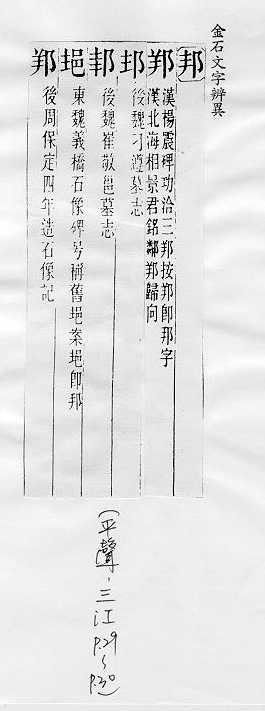 金石文字辨異
邦
邦漢楊震碑功洽三邦按邦卽邦字
漢北海相景君銘鄰邦歸向
邽後魏刁遵墓志
邦後魏崔敬邕墓志
㘫東魏義橋石像碑号稱舊㘫案㘫卽邦
邦後周保定四年造石像記
(平聲·三江 P.29~P.30)